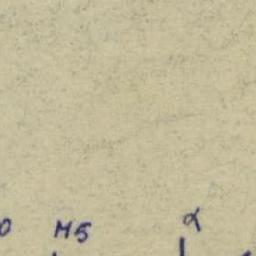 0 M5 α